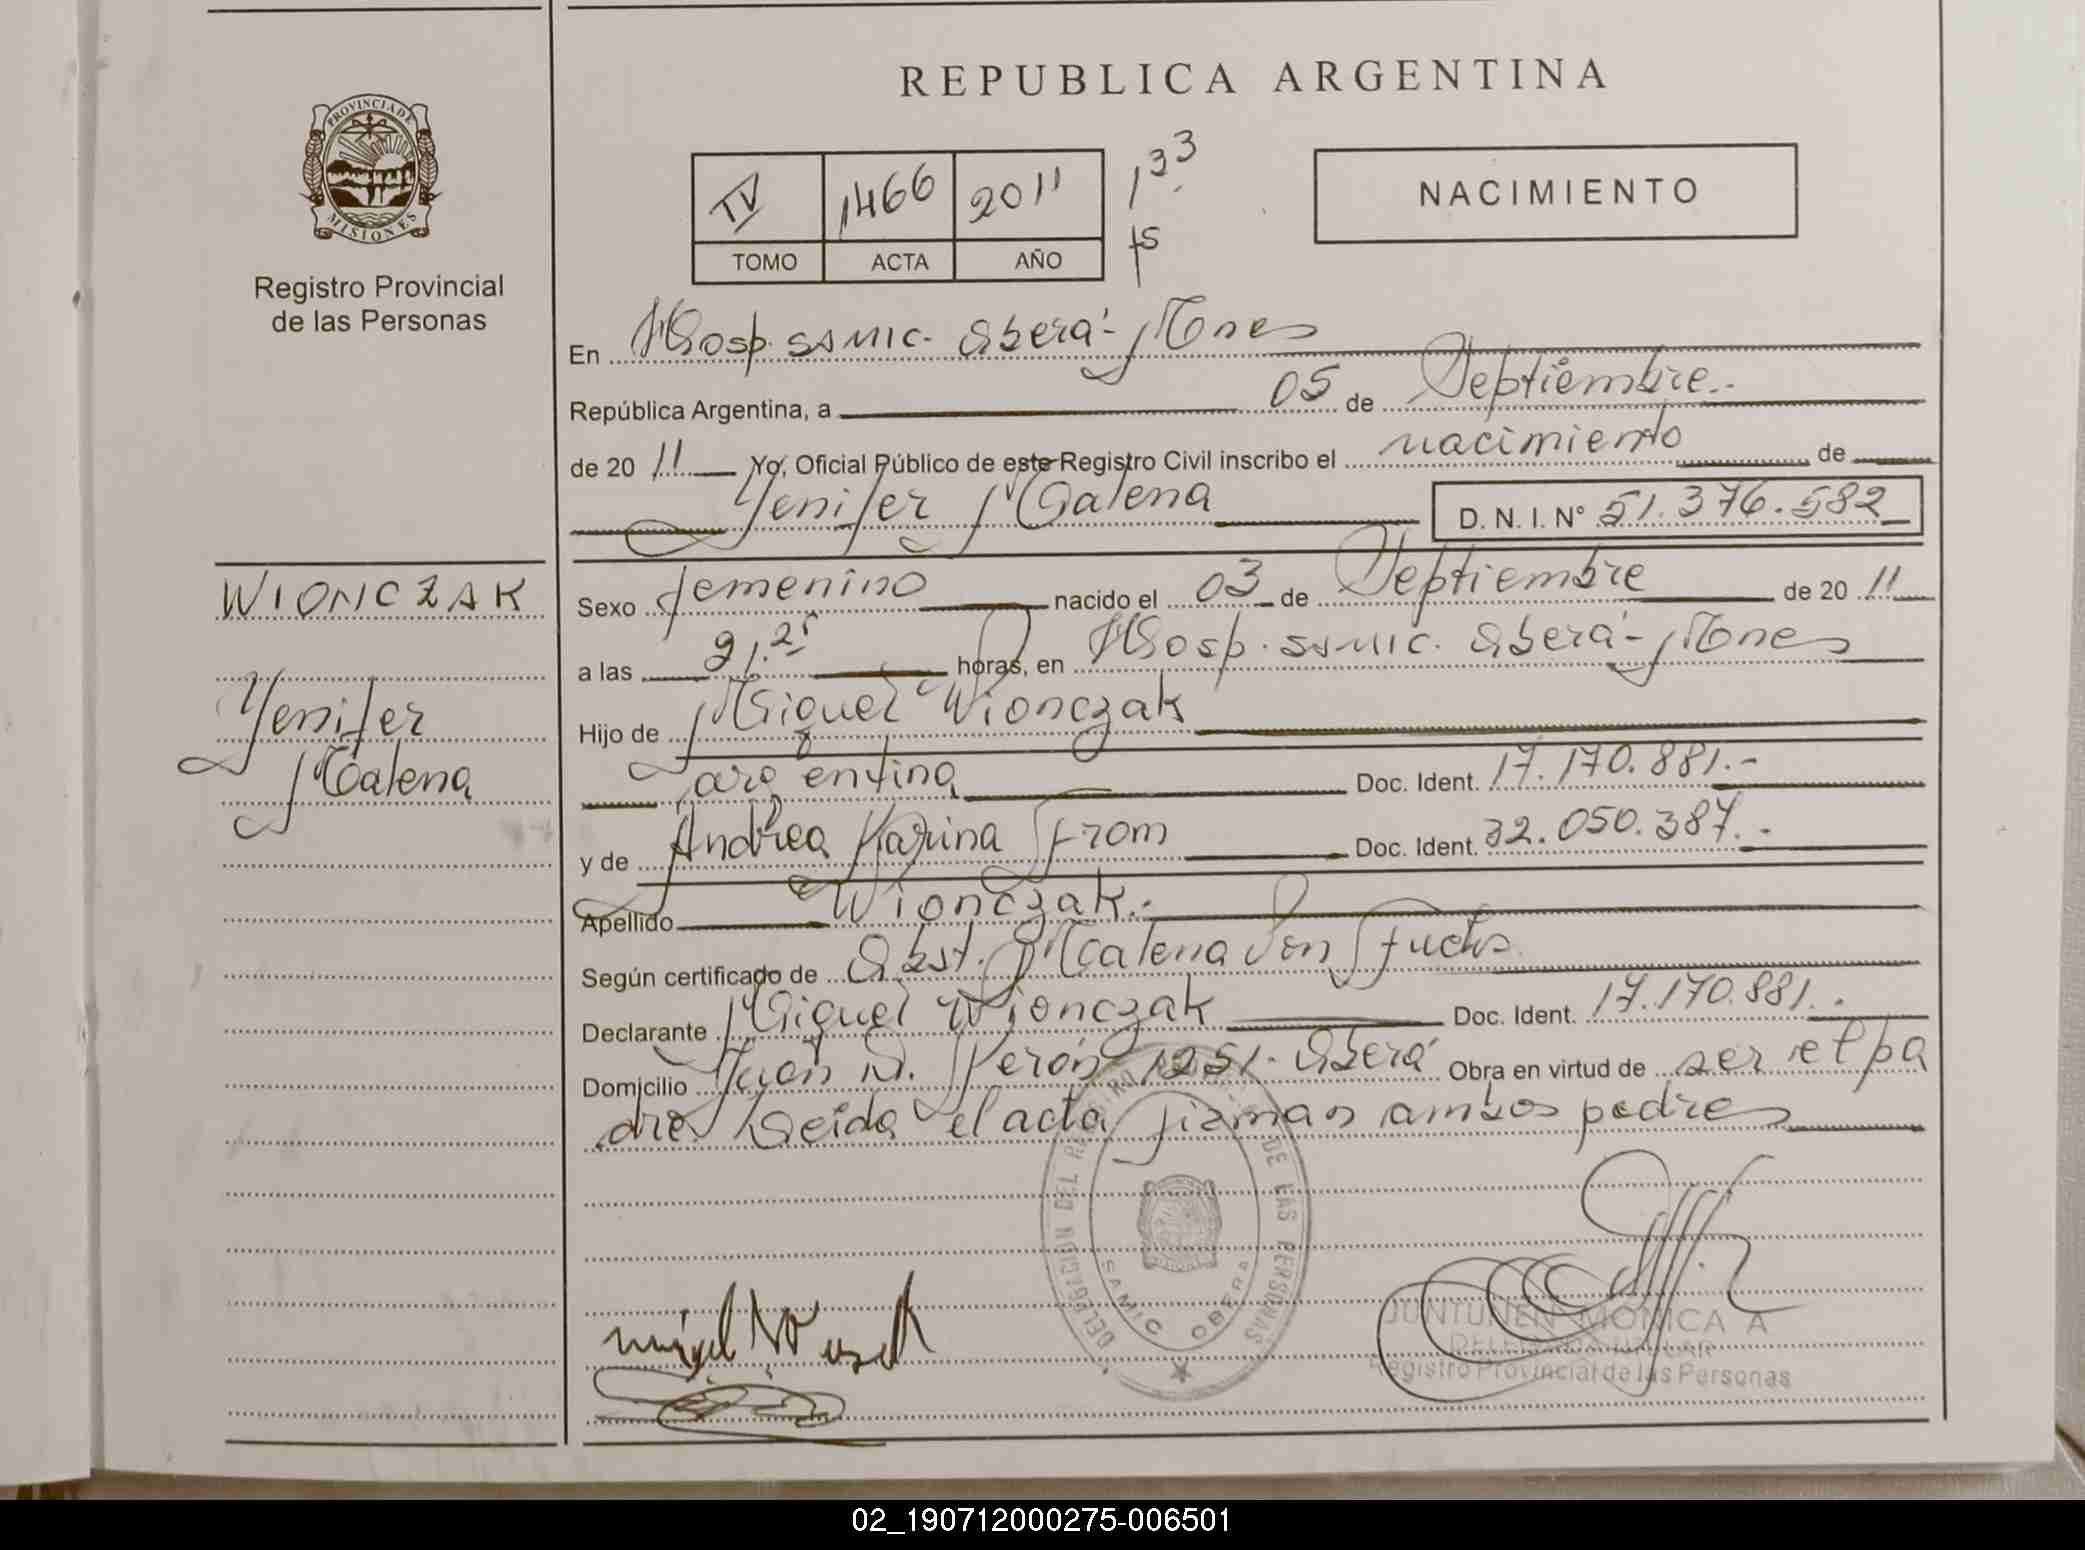 REPUBLICA ARGENTINA
PROVINCIA DE MISIONES
Registro Provincial
de las Personas
IV 1466 2011 133
TOMO ACTA AÑO
NACIMIENTO
En Hosp. SAMIC. Oberá - Mnes
República Argentina, a 05 de Septiembre.
de 20 11 Yo, Oficial Público de este Registro Civil inscribo el nacimiento de
Yenifer Malena D. N. I. N° 51.376.582
WIONCZAK
Yenifer
Malena
Sexo femenino nacido el 03 de Septiembre de 20 11
a las 21.25 horas, en Hosp. SAMIC. Oberá - Mnes
Hijo de Miguel Wionczak
argentina Doc. Ident. 17.170.881.-
y de Andrea Karina From Doc. Ident. 32.050.387.-
Apellido Wionczak.-
Según certificado de Obst. Malena Von Fuchs
Declarante Miguel Wionczak Doc. Ident. 17.170.881.-
Domicilio Juan D. Perón 1251- Oberá Obra en virtud de ser el pa
dre. Leída el acta firman ambos padres
DELEGACION DEL REGISTRO DE LAS PERSONAS
SAMIC OBERA
JUNTUNEN MONICA A
Registro Provincial de las Personas
02_190712000275-006501